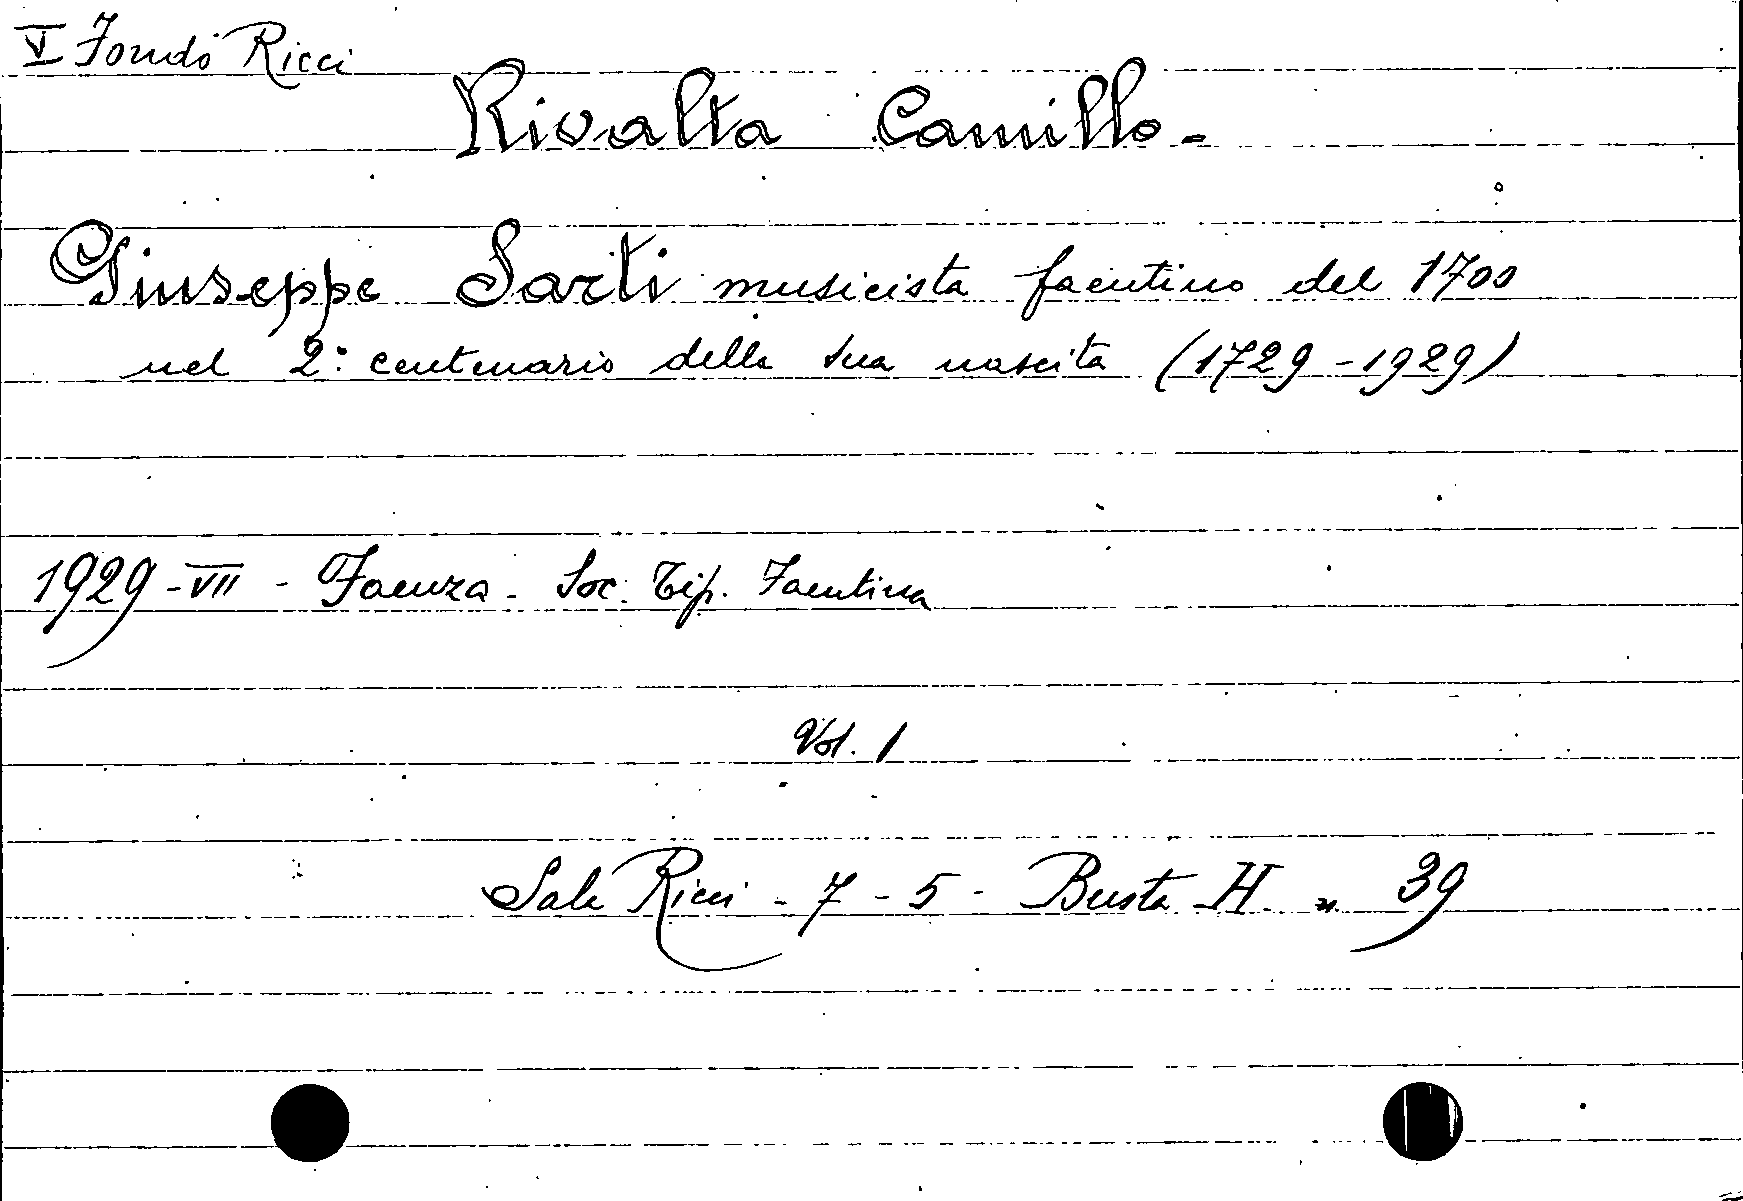 V Fondo Ricci
Rivalta Camillo -
Giuseppe Sarti musicista faentino del 1700
nel 2: centenario della sua nascita (1729-1929)
1929 - VII - Faenza - Soc. Tip. Faentina
Vol. 1
Sala Ricci - 7 - 5 - Busta H n. 39